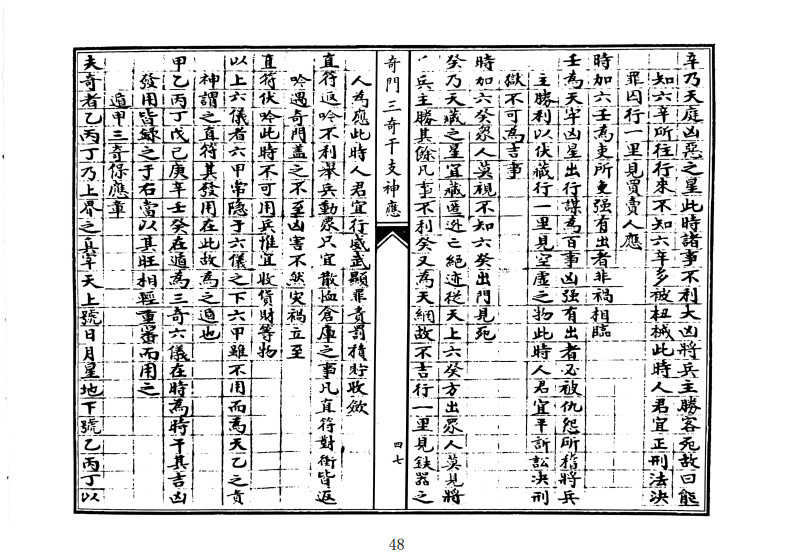 辛乃天庭凶惡之星此時諸事不利大凶將兵主勝客死故曰能
知六辛所往行來不知六辛多被杻械此時人君宜正刑法決
罪囚行一里見買賣人應
時加六壬為吏所更强有出者非禍相臨
壬為天牢凶星出行謀為百事凶强有出者必被仇怨所稽將兵
主勝利以伏藏行一里見空虚之物此時人君宜平訢訟決刑
獄不可為吉事
時加六癸眾人莫視不知六癸出門見死
癸乃天藏之星宜藏匿逃亡絕迹從天上六癸方出眾人莫見將
兵主勝其餘凡事不利癸又為天網故不吉行一里見鉄器之
奇門三奇干支神應
四七
人為應此時人君宜行威武顯罪責罰積貯收歛
直符返吟不利舉兵動眾只宜散恤倉庫之事凡直符對衝皆返
吟遇奇門盖之不至凶害不然災禍立至
直符伏吟此時不可用兵惟宜收貨財等物
以上六儀者六甲常隐于六儀之下六甲雖不用而為天乙之貴
神謂之直符其發用在此故為之遁也
甲乙丙丁戊己庚辛壬癸在遁為三奇六儀在時為時干其吉凶
發用皆錄之于右當以其旺相輕重審而用之
遁甲三奇保應章
夫奇者乙丙丁乃上界之真宰天上號日月星地下號乙丙丁以
48